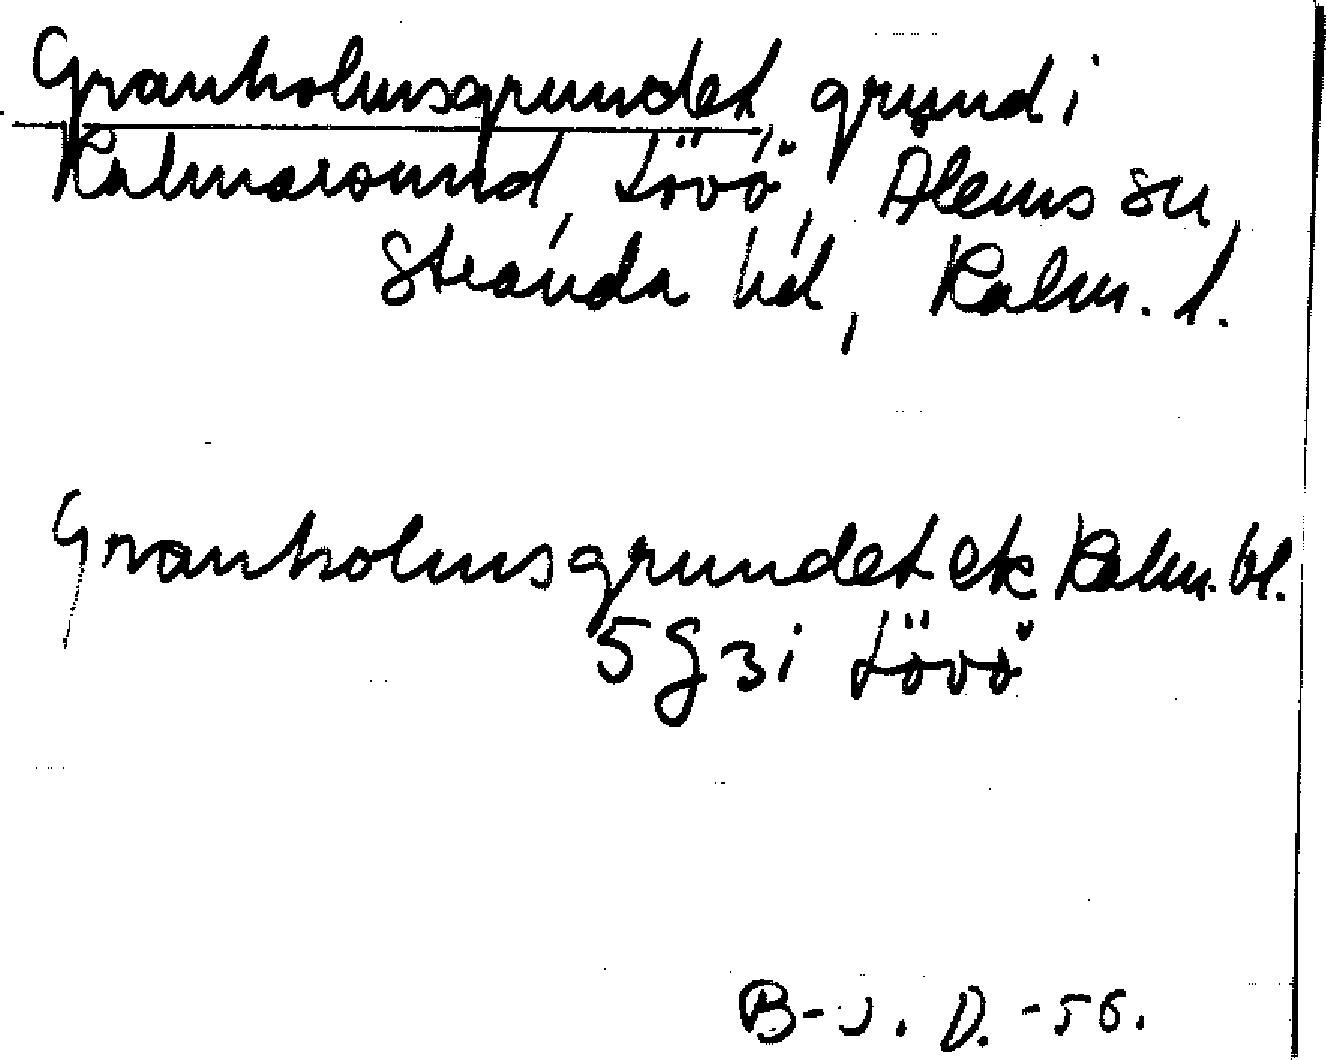 Granholmsgrundet, grund i
Kalmarsund, Lövö, Ålems sn,
Stranda hd, Kalm. l.
Granholmsgrundet ek Kalm. bl.
5 g 3 i Lövö
B-J. D. -56.